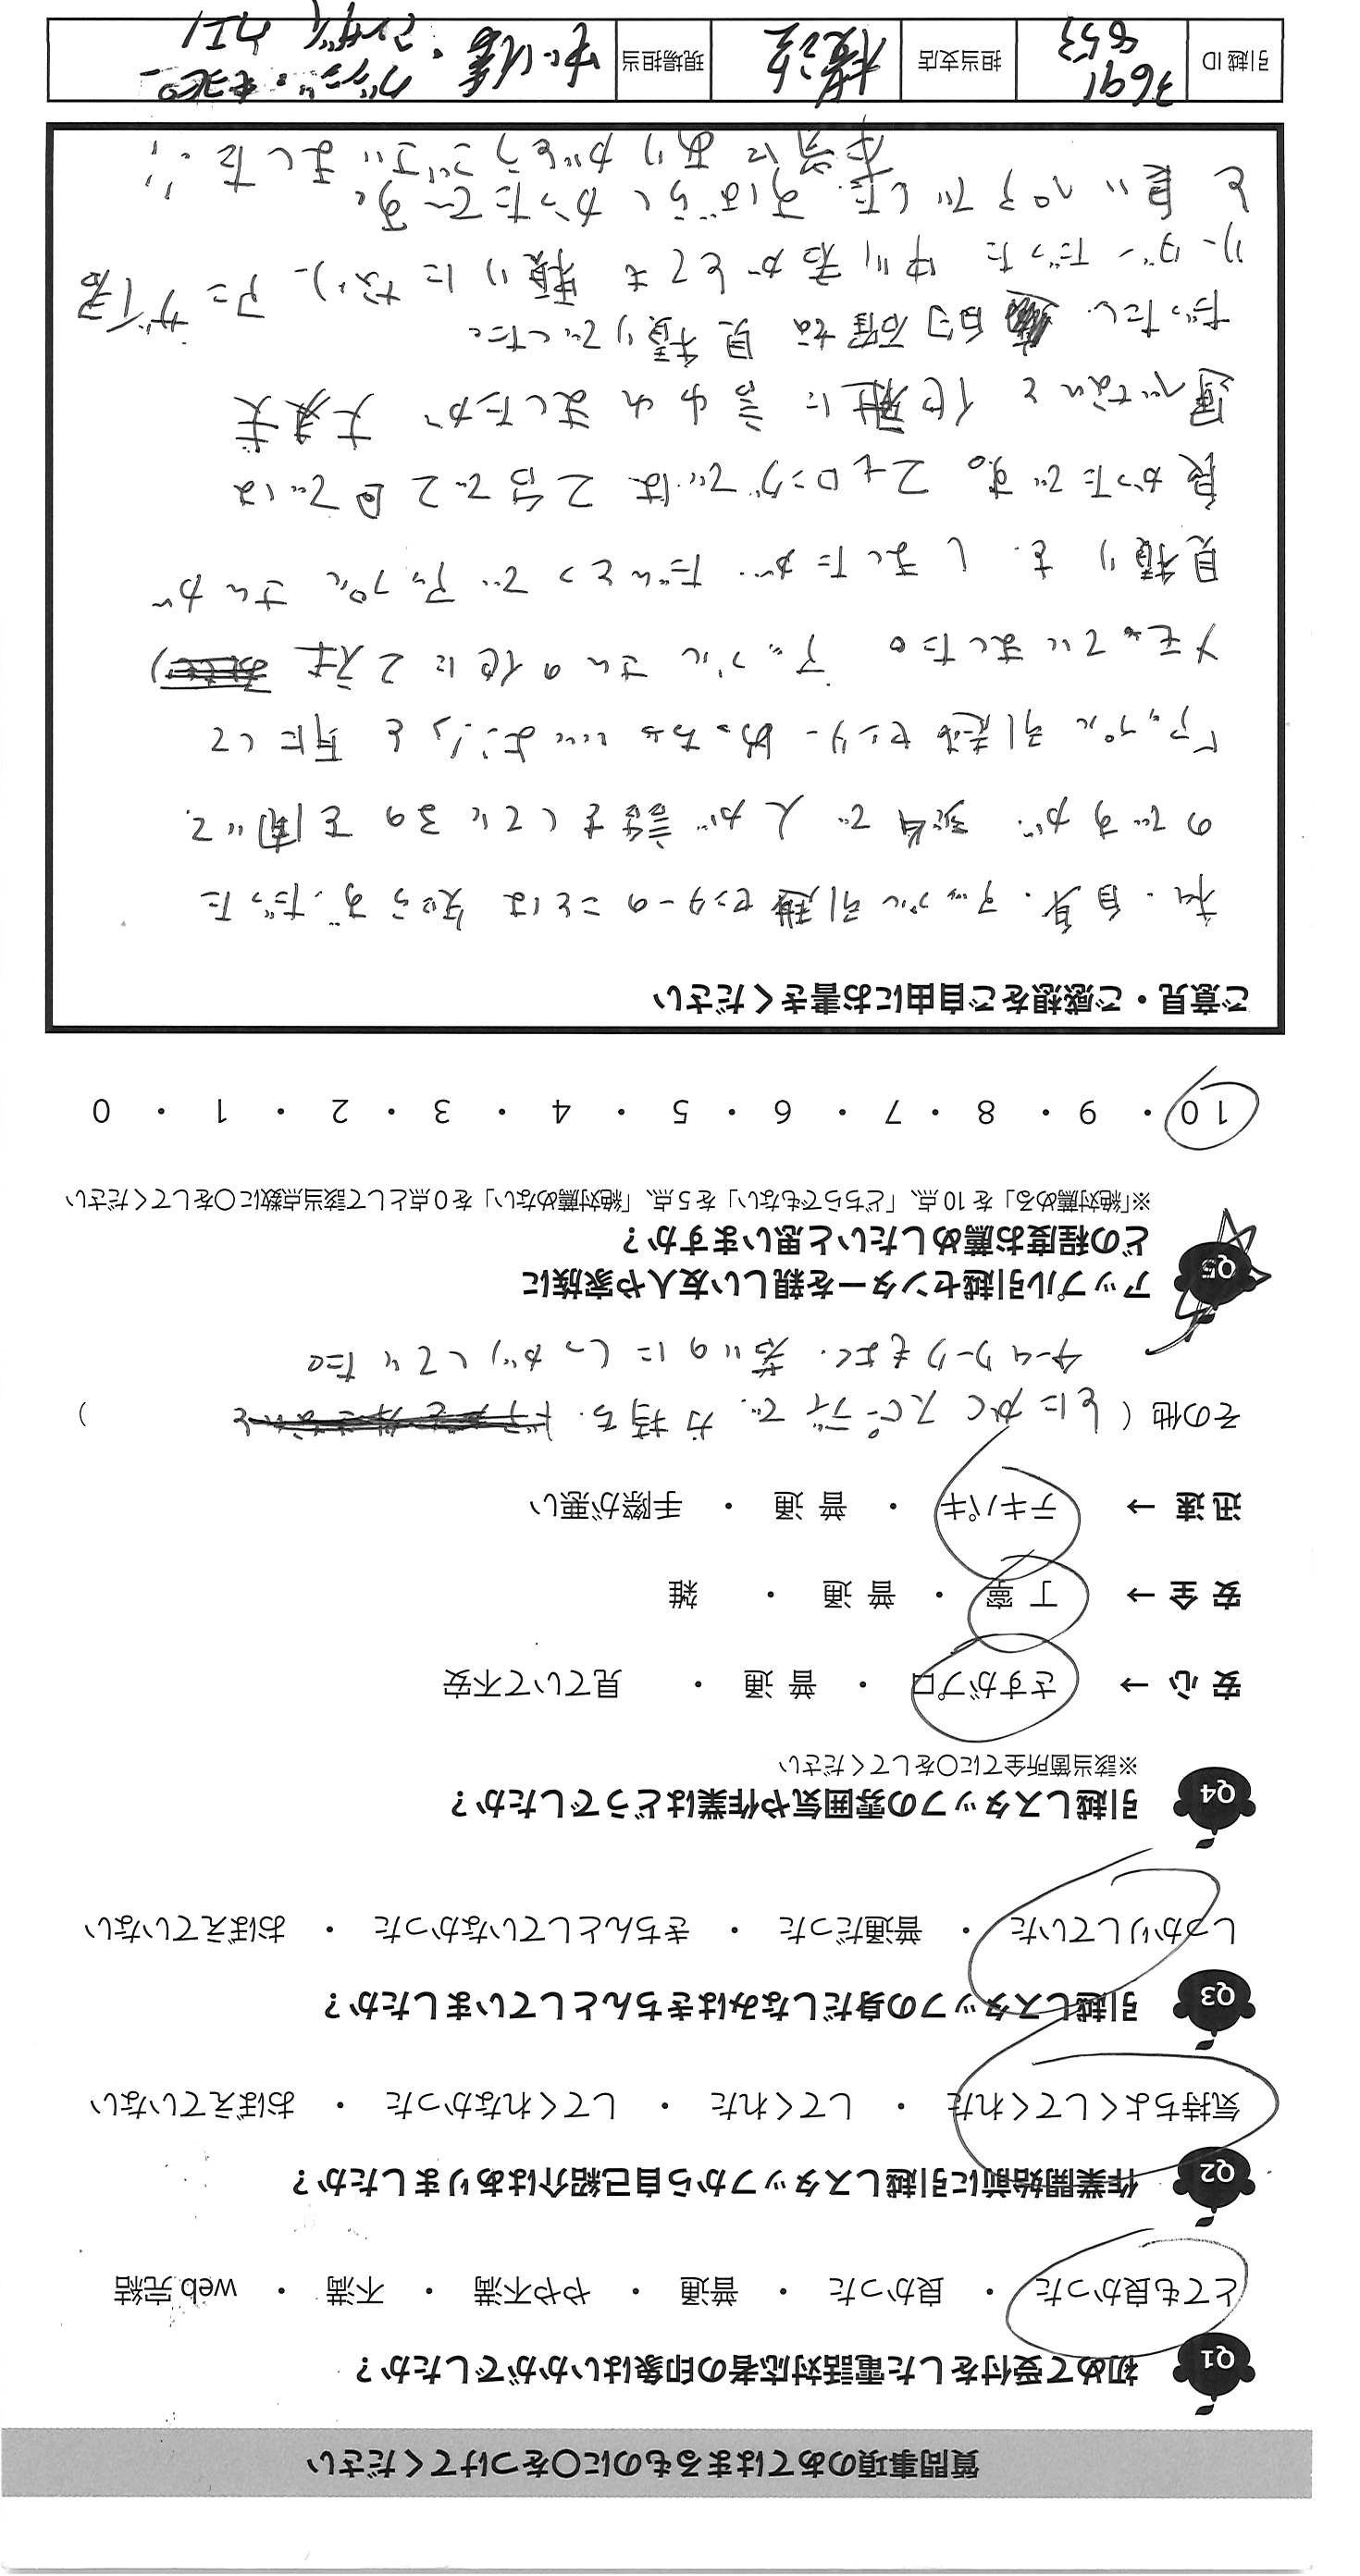 質問事項のあてはまるものに〇をつけてください
Q1 初めて受付をした電話対応者の印象はいかがでしたか？
とても良かった ・ 良かった ・ 普通 ・ やや不満 ・ 不満 ・ web完結
Q2 作業開始前に引越しスタッフから自己紹介はありましたか？
気持ちよくしてくれた ・ してくれた ・ してくれなかった ・ おぼえていない
Q3 引越しスタッフの身だしなみはきちんとしていましたか？
しっかりしていた ・ 普通だった ・ きちんとしていなかった ・ おぼえていない
Q4 引越しスタッフの雰囲気や作業はどうでしたか？
※該当箇所全てに〇をしてください
安心 → さすがプロ ・ 普通 ・ 見ていて不安
安全 → 丁寧 ・ 普通 ・ 雑
迅速 → テキパキ ・ 普通 ・ 手際が悪い
その他（ とにかくスピーディで、力持ち、 ）
チームワークもよく、若いのにしっかりしていた。
Q5 アップル引越センターを親しい友人や家族に
どの程度お薦めしたいと思いますか？
※「絶対薦める」を10点、「どちらでもない」を5点、「絶対薦めない」を0点として該当点数に〇をしてください
10 ・ 9 ・ 8 ・ 7 ・ 6 ・ 5 ・ 4 ・ 3 ・ 2 ・ 1 ・ 0
ご意見・ご感想をご自由にお書きください
私、自身、アップル引越センターのことは知らずだった
のですが、で人が話をしているのを聞いて、
「アップル引越センターめっちゃいいよ!」と耳にして
メモっていました。アップルさんの他に2社
見積りをしましたが、だんとつでアップルさんが
良かったです。2tロングでは2台で2回では
運べないと他社に言われましたが 大丈夫
だったし、的確な見積りでした。
リーダーだった中川君がとても頼りになり、アニザイ君
と良いペアでした。すばらしかったで〜す。
本当にありがとうございました!!
引越ID 3691 853 担当支店 横浜 現場担当